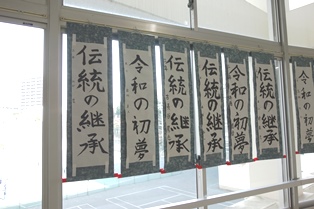 伝統の継承
令和の初夢
伝統の継承
伝統の継承
令和の初夢
伝統の継承
令和の初夢